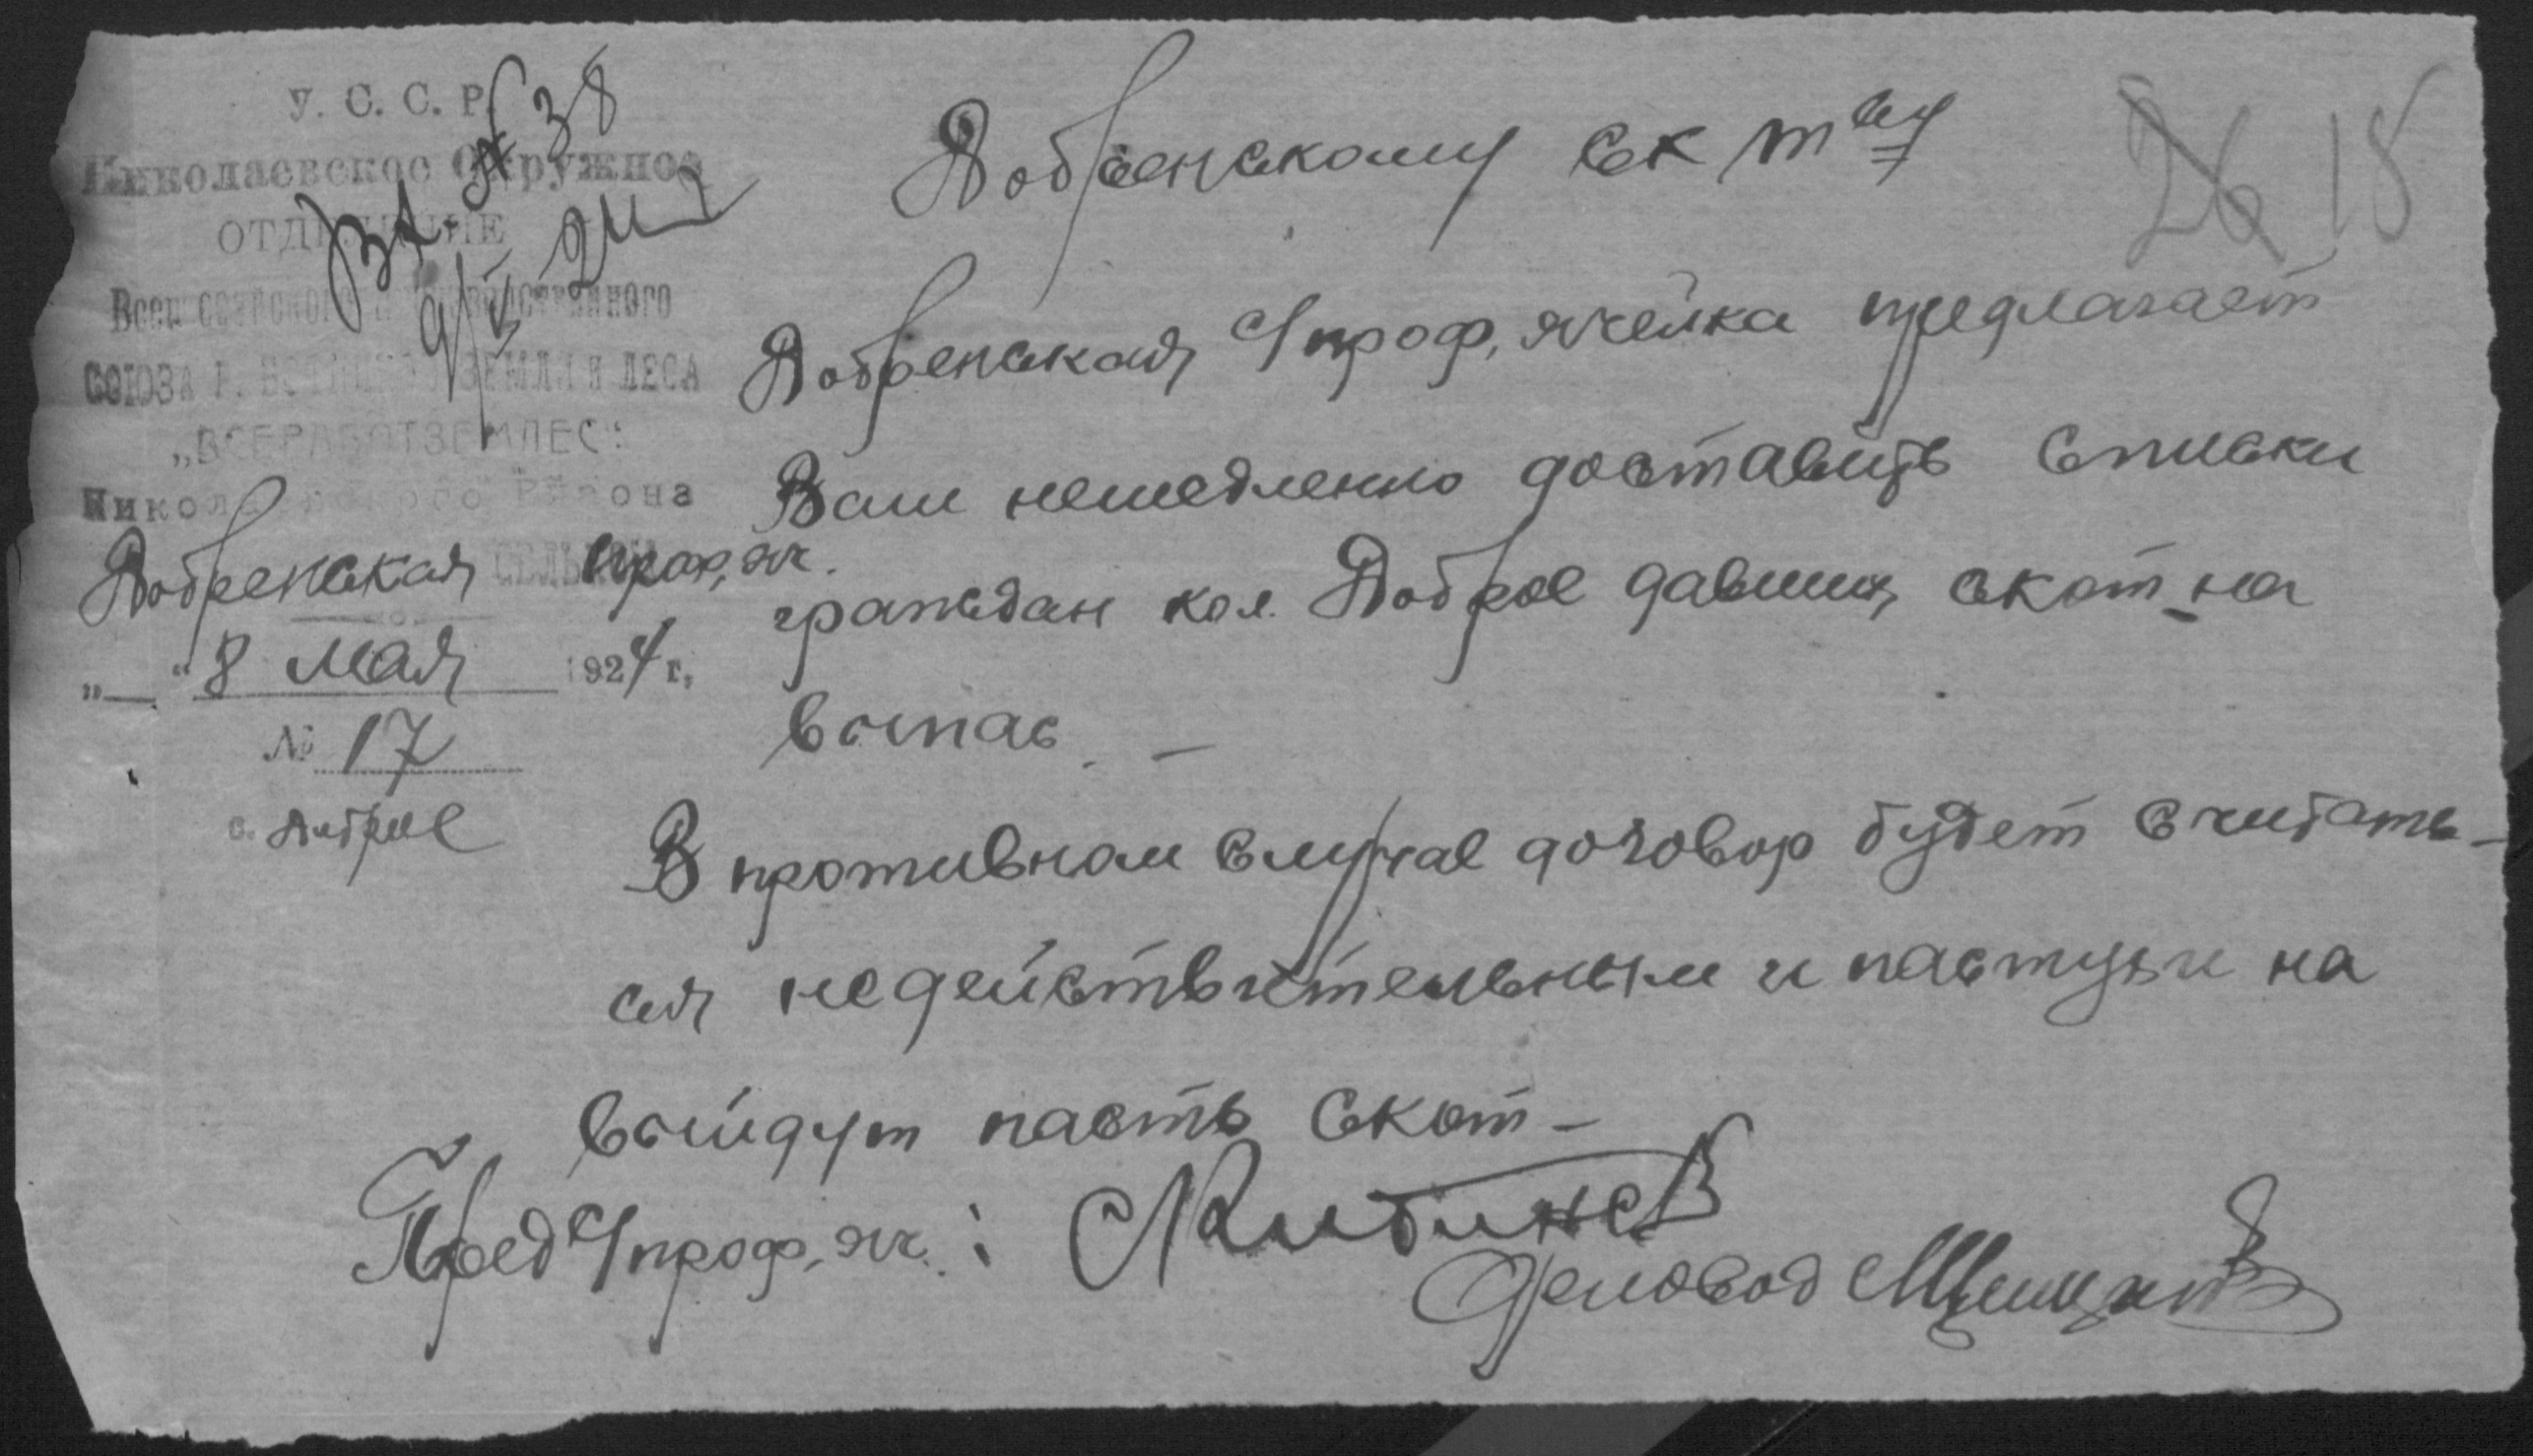 У. С. С. Р.
Николаевское Окружное
ОТДЕЛЕНИЕ
Всероссийского Производственного
СОЮЗА РАБОТНИКОВ ЗЕМЛИ И ЛЕСА
„ВСЕРАБОТЗЕМЛЕС"
Николаевского Района
Добренская проф, яч.
„__" 8 мая 1924 г.
№ 17
с. Доброе
Вх. № 38
9/V 24
26 18
Добренскому с к т ву
Добренская с/проф, ячейка предлагает
Вам немедленно доставить списки
граждан кол. Доброе давших скот на
выпас. –
В противном случае договор будет считать-
ся недействительным и пастухи на
выйдут пасть скот –
Пред с/проф, яч. :
Деловод